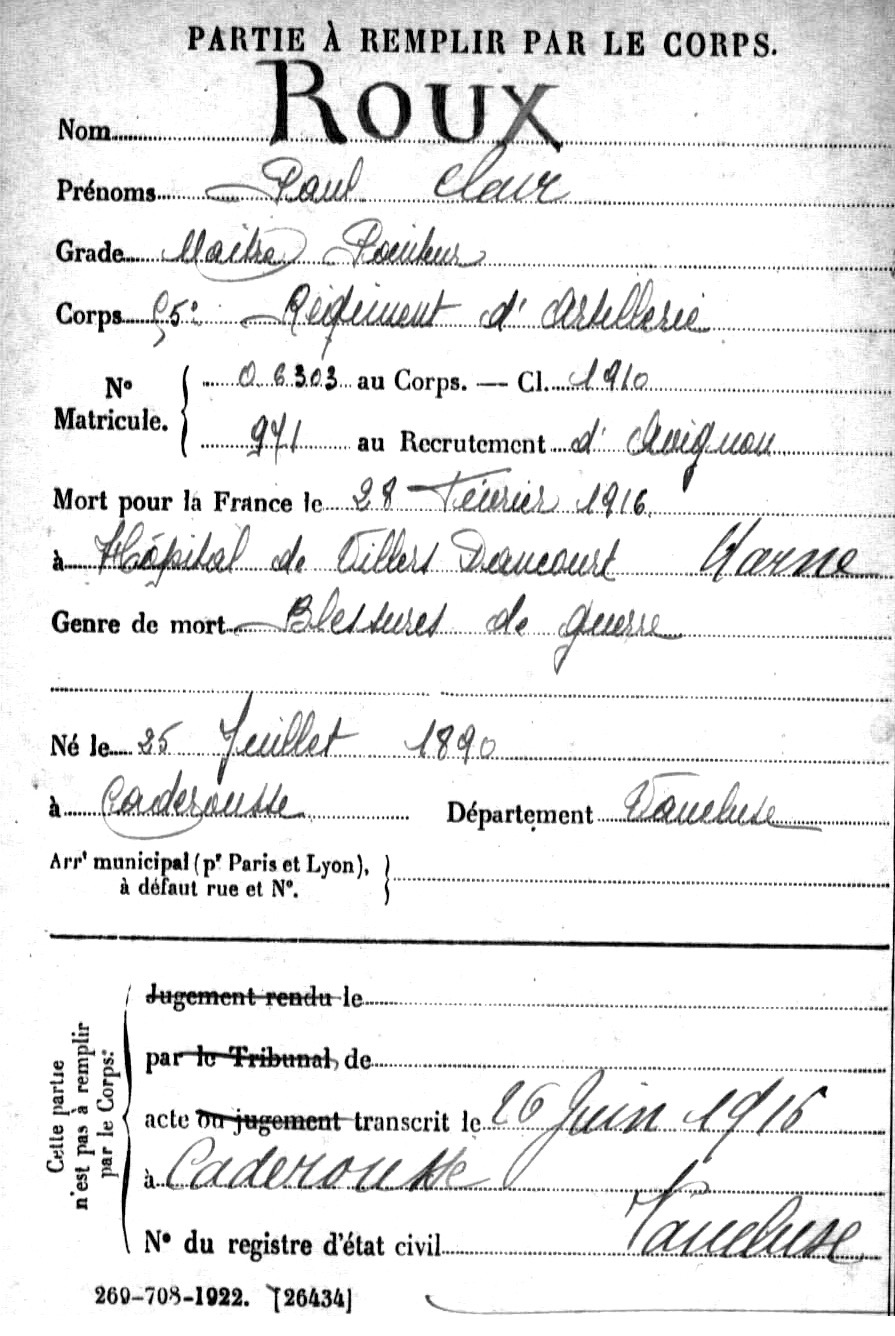 PARTIE À REMPLIR PAR LE CORPS.
Nom ROUX
Prénoms Paul Clair
Grade Maître Pointeur
Corps 55e Régiment d'Artillerie
No Matricule. { 0.6303 au Corps. — Cl. 1910
971 au Recrutement d'Avignon
Mort pour la France le 28 Février 1916
à Hôpital de Villers Daucourt Marne
Genre de mort Blessures de guerre
Né le 25 Juillet 1890
à Caderousse Département Vaucluse
Arrt municipal (pr Paris et Lyon), }
à défaut rue et No.
Cette partie n'est pas à remplir par le Corps.
Jugement rendu le
par le Tribunal de
acte ou jugement transcrit le 26 Juin 1916
à Caderousse
Vaucluse
No du registre d'état civil
269-708-1922. [26434]